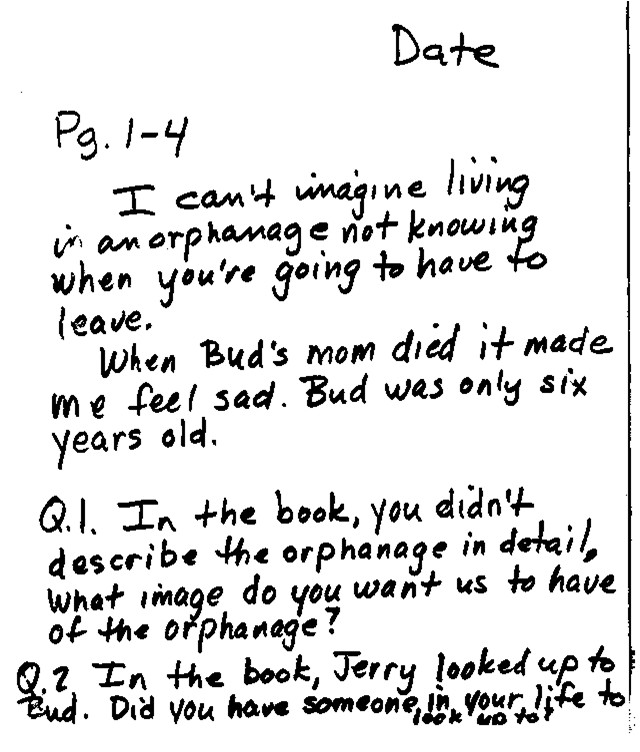 Date
Pg. 1-4
I can't imagine living
in an orphanage not knowing
when you're going to have to
leave.
When Bud's mom died it made
me feel sad. Bud was only six
years old.
Q.1. In the book, you didn't
describe the orphanage in detail,
What image do you want us to have
of the orphanage?
Q.2 In the book, Jerry looked up to
Bud. Did you have someone in your life to
look up to?